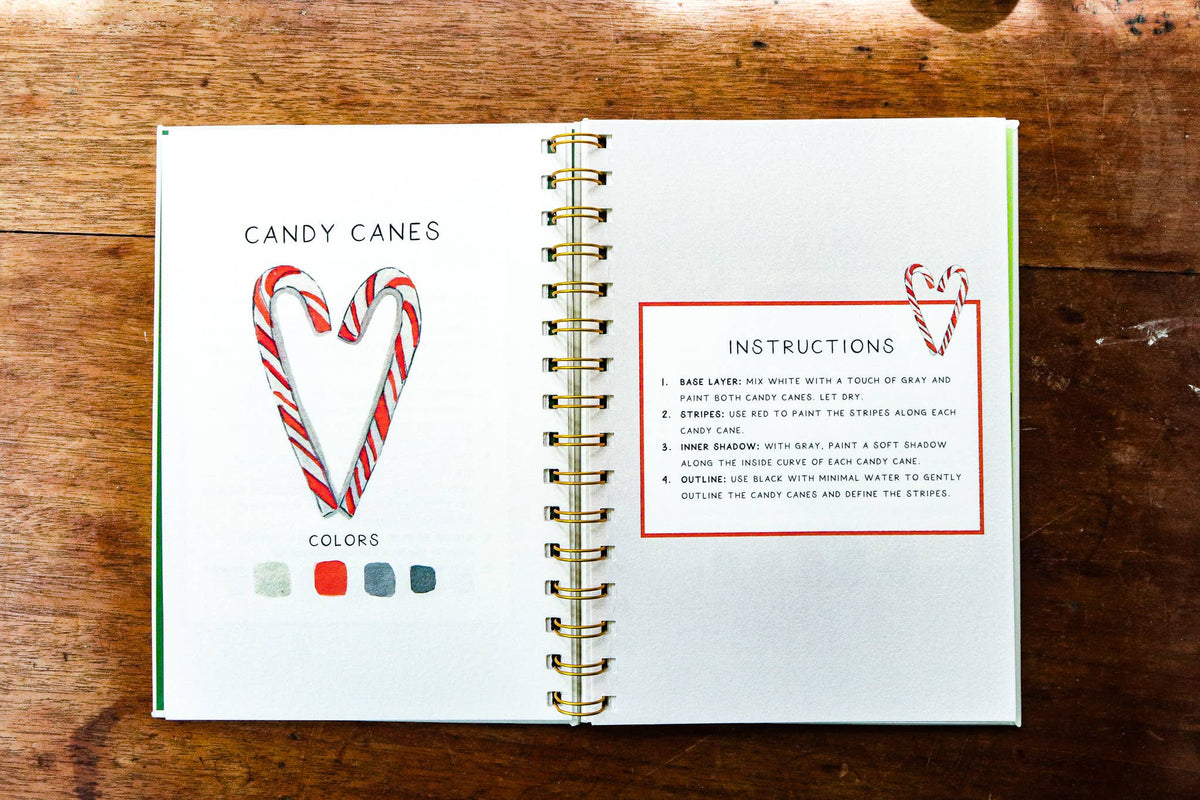 CANDY CANES
COLORS
INSTRUCTIONS
1. BASE LAYER: MIX WHITE WITH A TOUCH OF GRAY AND
PAINT BOTH CANDY CANES. LET DRY.
2. STRIPES: USE RED TO PAINT THE STRIPES ALONG EACH
CANDY CANE.
3. INNER SHADOW: WITH GRAY, PAINT A SOFT SHADOW
ALONG THE INSIDE CURVE OF EACH CANDY CANE.
4. OUTLINE: USE BLACK WITH MINIMAL WATER TO GENTLY
OUTLINE THE CANDY CANES AND DEFINE THE STRIPES.